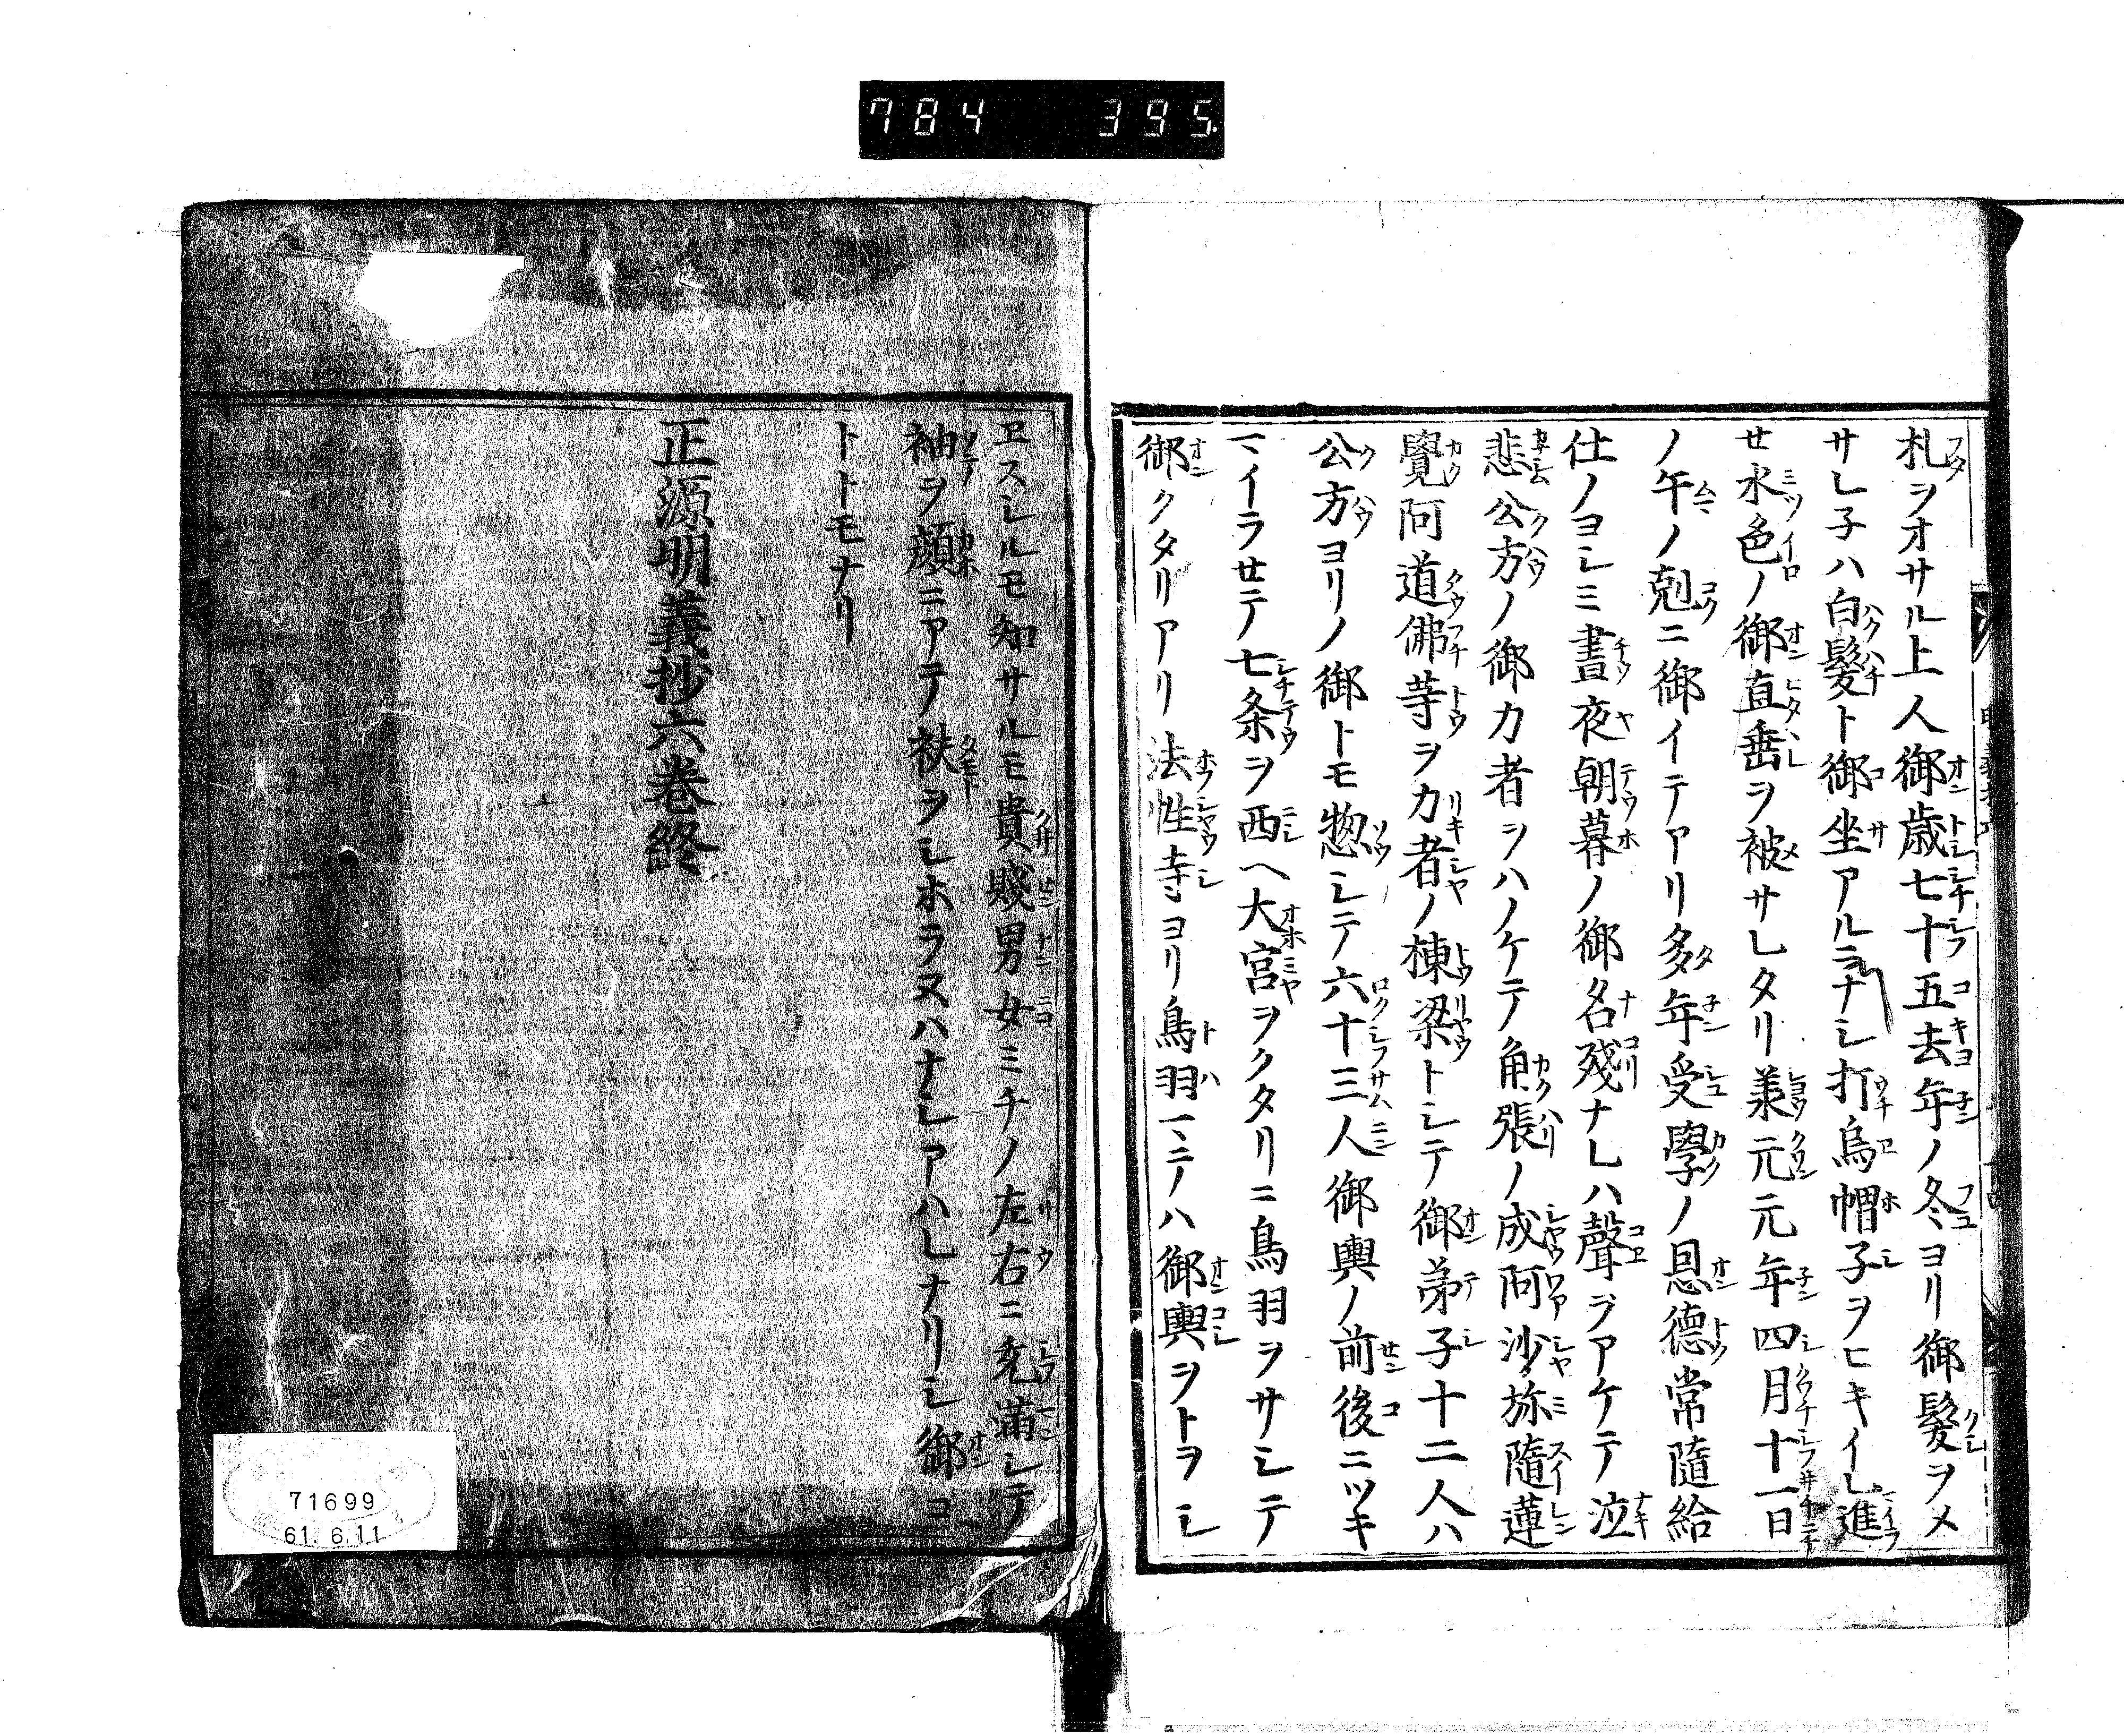 784 395
札ヲオサル上人御歳七十五去年ノ冬ヨリ御髪ヲメ
サレ子ハ白髪ト御坐アルヲナシ打烏帽子ヲヒキイレ進
せ水色ノ御直垂ヲ被サレタリ兼元元年四月十一日
ノ午ノ剋ニ御イテアリ多年受學ノ恩徳常隨給
仕ノヨシミ晝夜朝暮ノ御名殘ナレハ聲ヲアケテ泣
悲公方ノ御力者ヲハノケテ角張ノ成阿沙弥隨蓮
覺阿道佛等ヲ力者ノ棟梁トシテ御弟子十二人ハ
公方ヨリノ御トモ惣シテ六十三人御輿ノ前後ニツキ
マイラせテ七条ヲ西ヘ大宮ヲクタリニ鳥羽ヲサシテ
御クタリアリ法性寺ヨリ鳥羽マテハ御輿ヲトヲシ
ヱスシルモ知サルモ貴賤男女ミチノ左右ニ充滿シテ
袖ヲ顔ニアテヽ袂ヲシホラヌハナシアハレナリシ御コ
トトモナリ
正源明義抄六巻終
71699
61.6.11